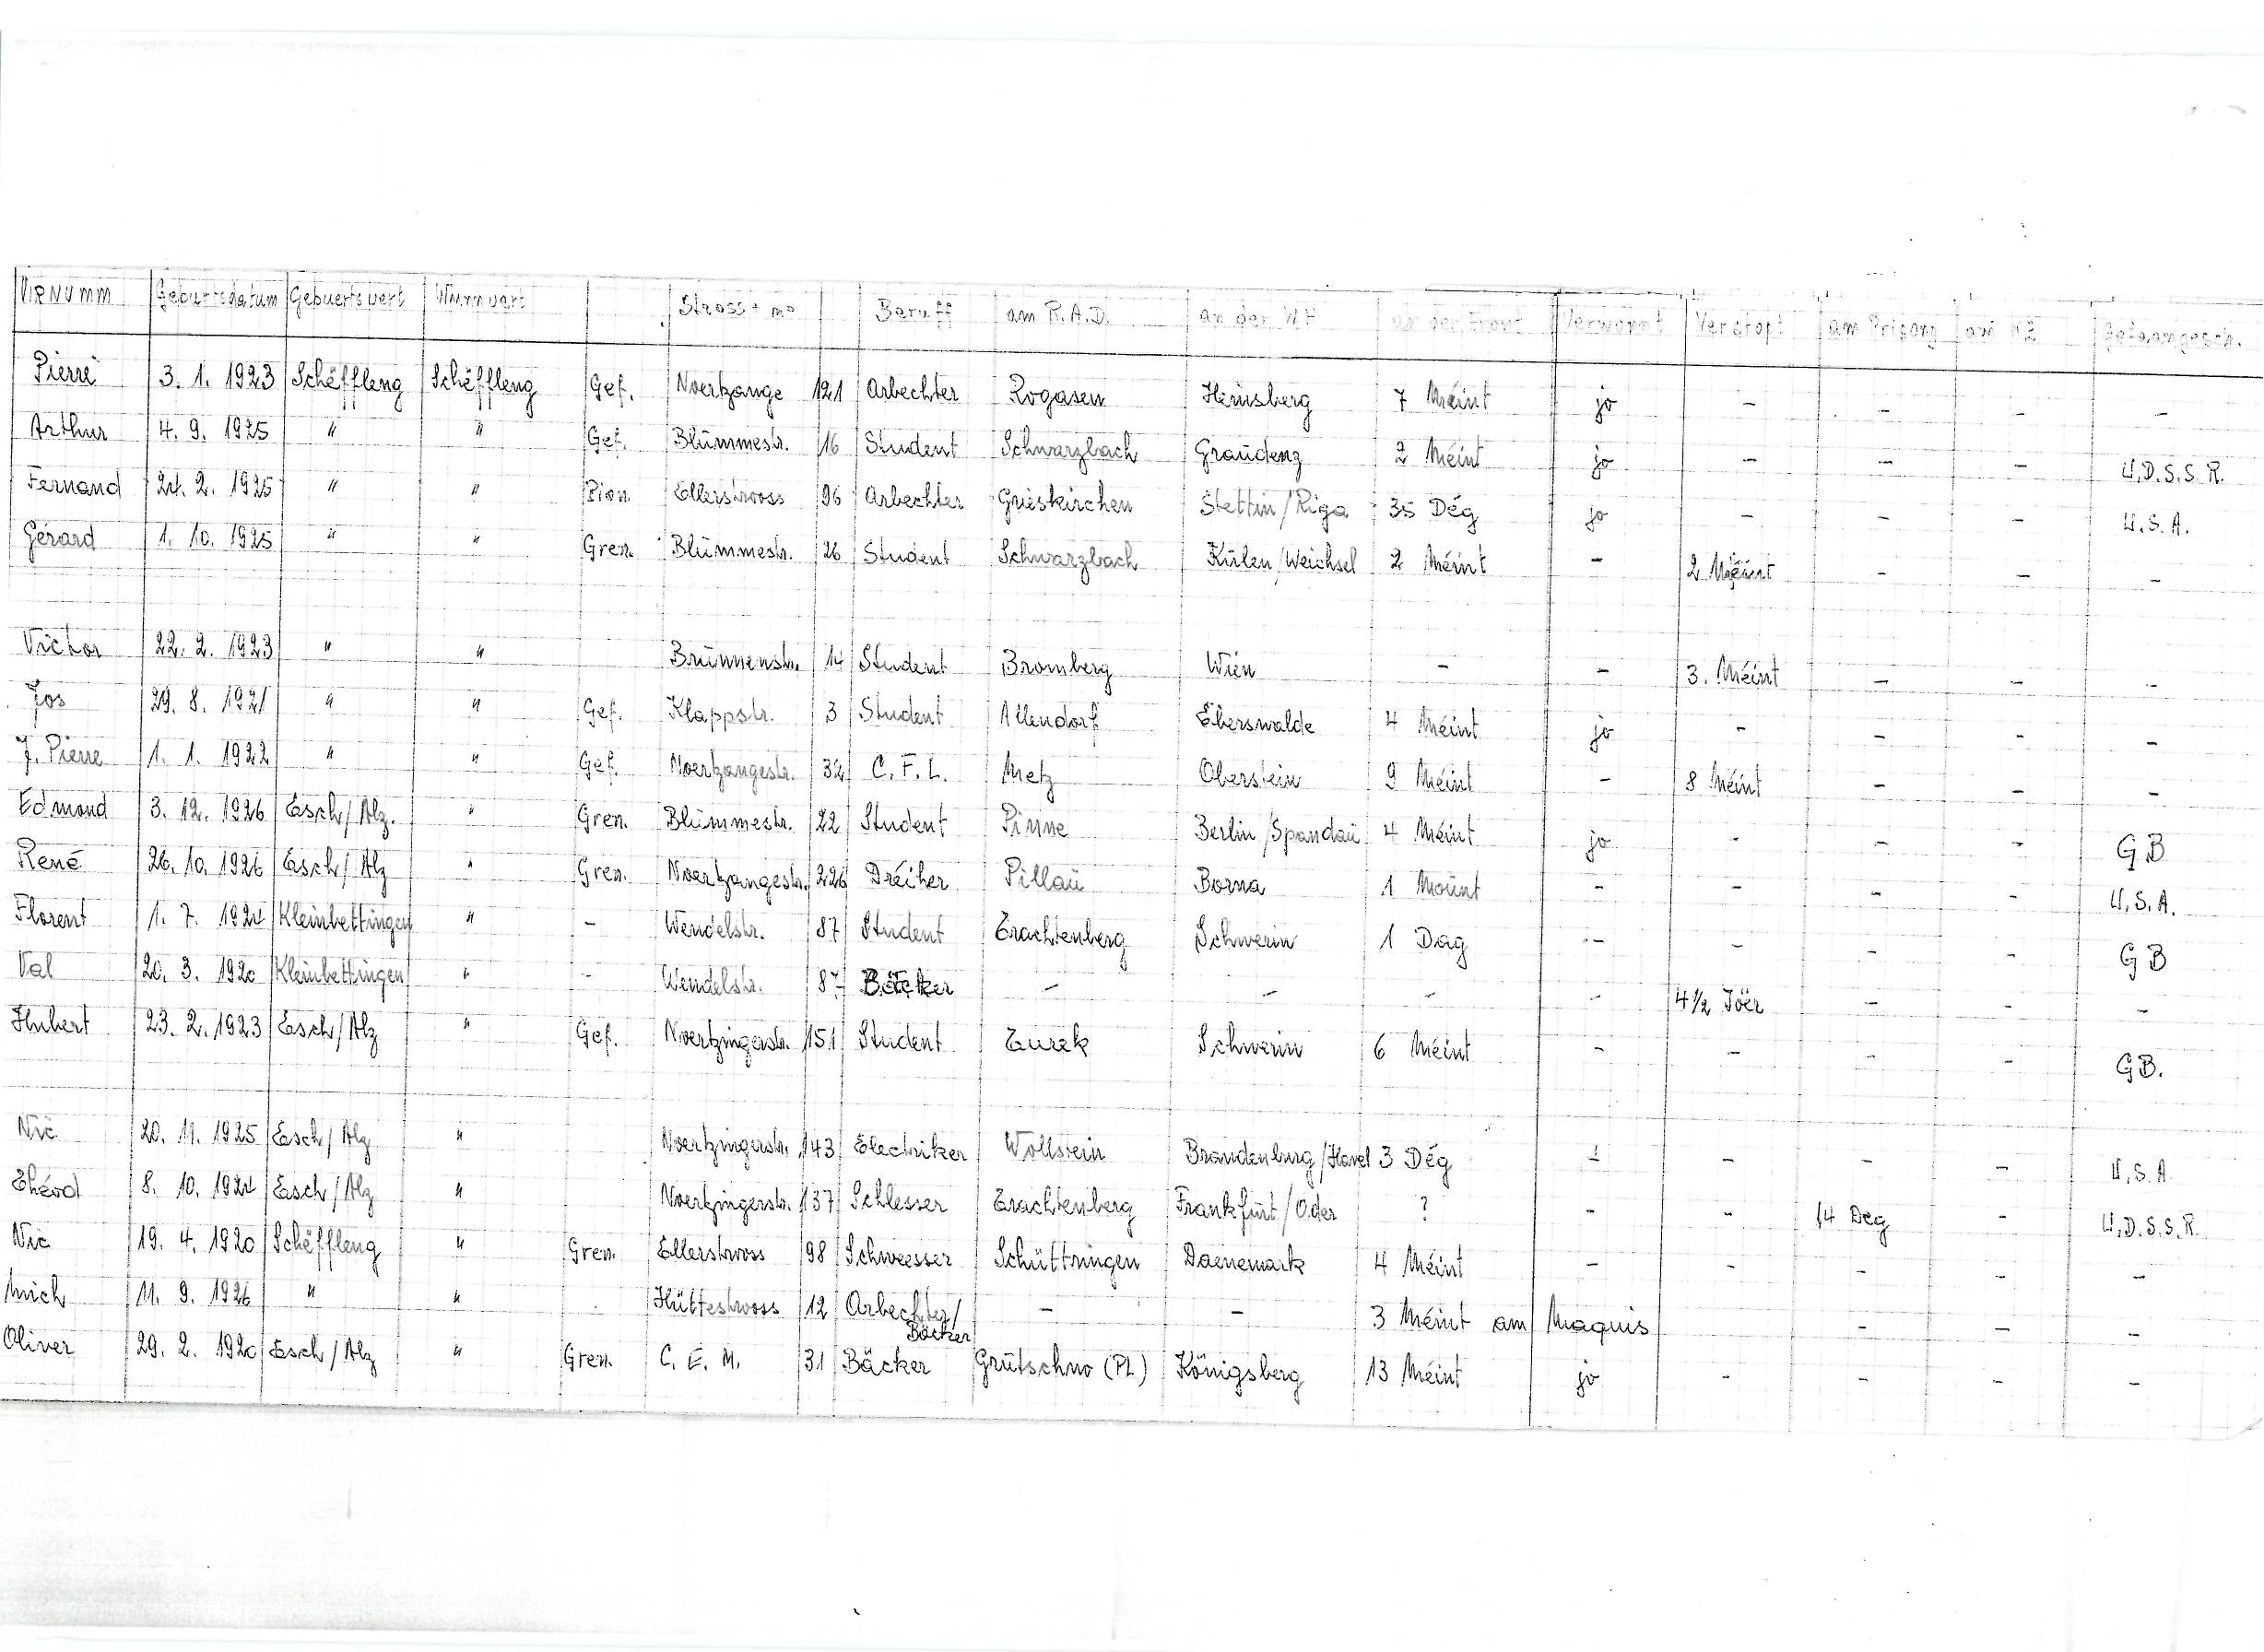 VIRNUMM Geburtsdatum Gebuertsuert Wunnuert Stross + no Beruff am R.A.D. an der WH an der Front Verwonnt Verstopt am Prisong am KZ Gefaangesch.
Pierre 3. 1. 1923 Schëffleng Schëffleng Gef. Noertzange 121 Arbechter Rogasen Heinsberg 7 Méint jo - - - -
Arthur 4. 9. 1925 " " Gef. Blummestr. 16 Student Schwarzbach Graudenz 2 Méint jo - - - U.D.S.S.R.
Fernand 24. 2. 1925 " " Pion. Ellerstrooss 96 Arbechter Grieskirchen Stettin/Riga 35 Dég jo - - - U.S.A.
Gérard 1. 10. 1925 " " Gren. Blummestr. 26 Student Schwarzbach Kulen/Weichsel 2 Méint - 2 Méint - - -
Victor 22. 2. 1923 " " Brunnenstr. 14 Student Bromberg Wien - - 3. Méint - - -
Jos 29. 8. 1921 " " Gef. Klappstr. 3 Student Allendorf Eberswalde 4 Méint jo - - - -
J. Pierre 1. 1. 1922 " " Gef. Noertzangestr. 32 C.F.L. Metz Oberstein 9 Méint - 8 Méint - - -
Edmond 3. 12. 1926 Esch/Alz. " Gren. Blummestr. 22 Student Pinne Berlin/Spandau 4 Méint jo - - - GB
René 26. 10. 1926 Esch/Alz " Gren. Noertzangestr. 226 Dréiher Pillau Borna 1 Mount - - - - U.S.A.
Florent 1. 7. 1924 Kleinbettingen " - Wendelstr. 87 Student Trachtenberg Schwerin 1 Dag - - - - GB
Val 20. 3. 1920 Kleinbettingen " - Wendelstr. 87 Bäcker - - - - 4 1/2 Jöer - - -
Hubert 23. 2. 1923 Esch/Alz " Gef. Noertzingerstr. 151 Student Turek Schwerin 6 Méint - - - - GB.
Nic 20. 11. 1925 Esch/Alz " Noertzingerstr. 143 Electriker Wollstein Brandenburg/Havel 3 Dég - - - - U.S.A.
Théod 8. 10. 1924 Esch/Alz " Noertzingerstr. 137 Schlesser Trachtenberg Frankfurt/Oder ? - - 14 Deg - U.D.S.S.R.
Nic 19. 4. 1920 Schëffleng " Gren. Ellerstrooss 98 Schweesser Schüttringen Daenemark 4 Méint - - - - -
Mich 11. 9. 1926 " " Hüttestrooss 12 Arbechter/ - - 3 Méint am Maquis - - -
Bäcker
Oliver 29. 2. 1920 Esch/Alz " Gren. C.E.M. 31 Bäcker Grutschno (PL) Königsberg 13 Méint jo - - - -